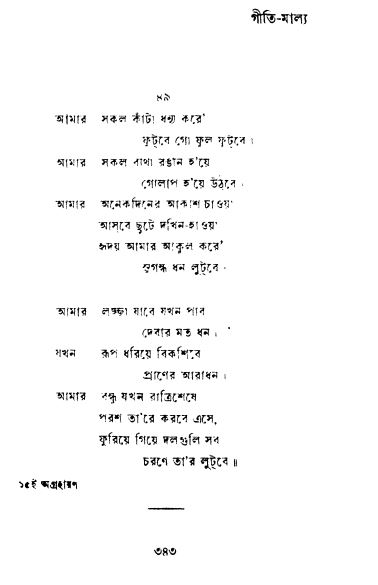 গীতি-মাল্য
৪৯
আমার সকল কাঁটা ধন্য করে'
ফুট্‌বে গো ফুল ফুট্‌বে।
আমার সকল ব্যথা রঙীন হ'য়ে
গোলাপ হ'য়ে উঠবে।
আমার অনেকদিনের আকাশ চাওয়া
আস্‌বে ছুটে দখিন-হাওয়া
হৃদয় আমার আকুল করে'
সুগন্ধ ধন লুট্‌বে।
আমার লজ্জা যাবে যখন পাব
দেবার মত ধন।
যখন রূপ ধরিয়ে বিকশিবে
প্রাণের আরাধন।
আমার বন্ধু যখন রাত্রিশেষে
পরশ তা'রে করবে এসে,
ফুরিয়ে গিয়ে দলগুলি সব
চরণে তা'র লুট্‌বে॥
১৫ই অগ্রহায়ণ
৩৪৩